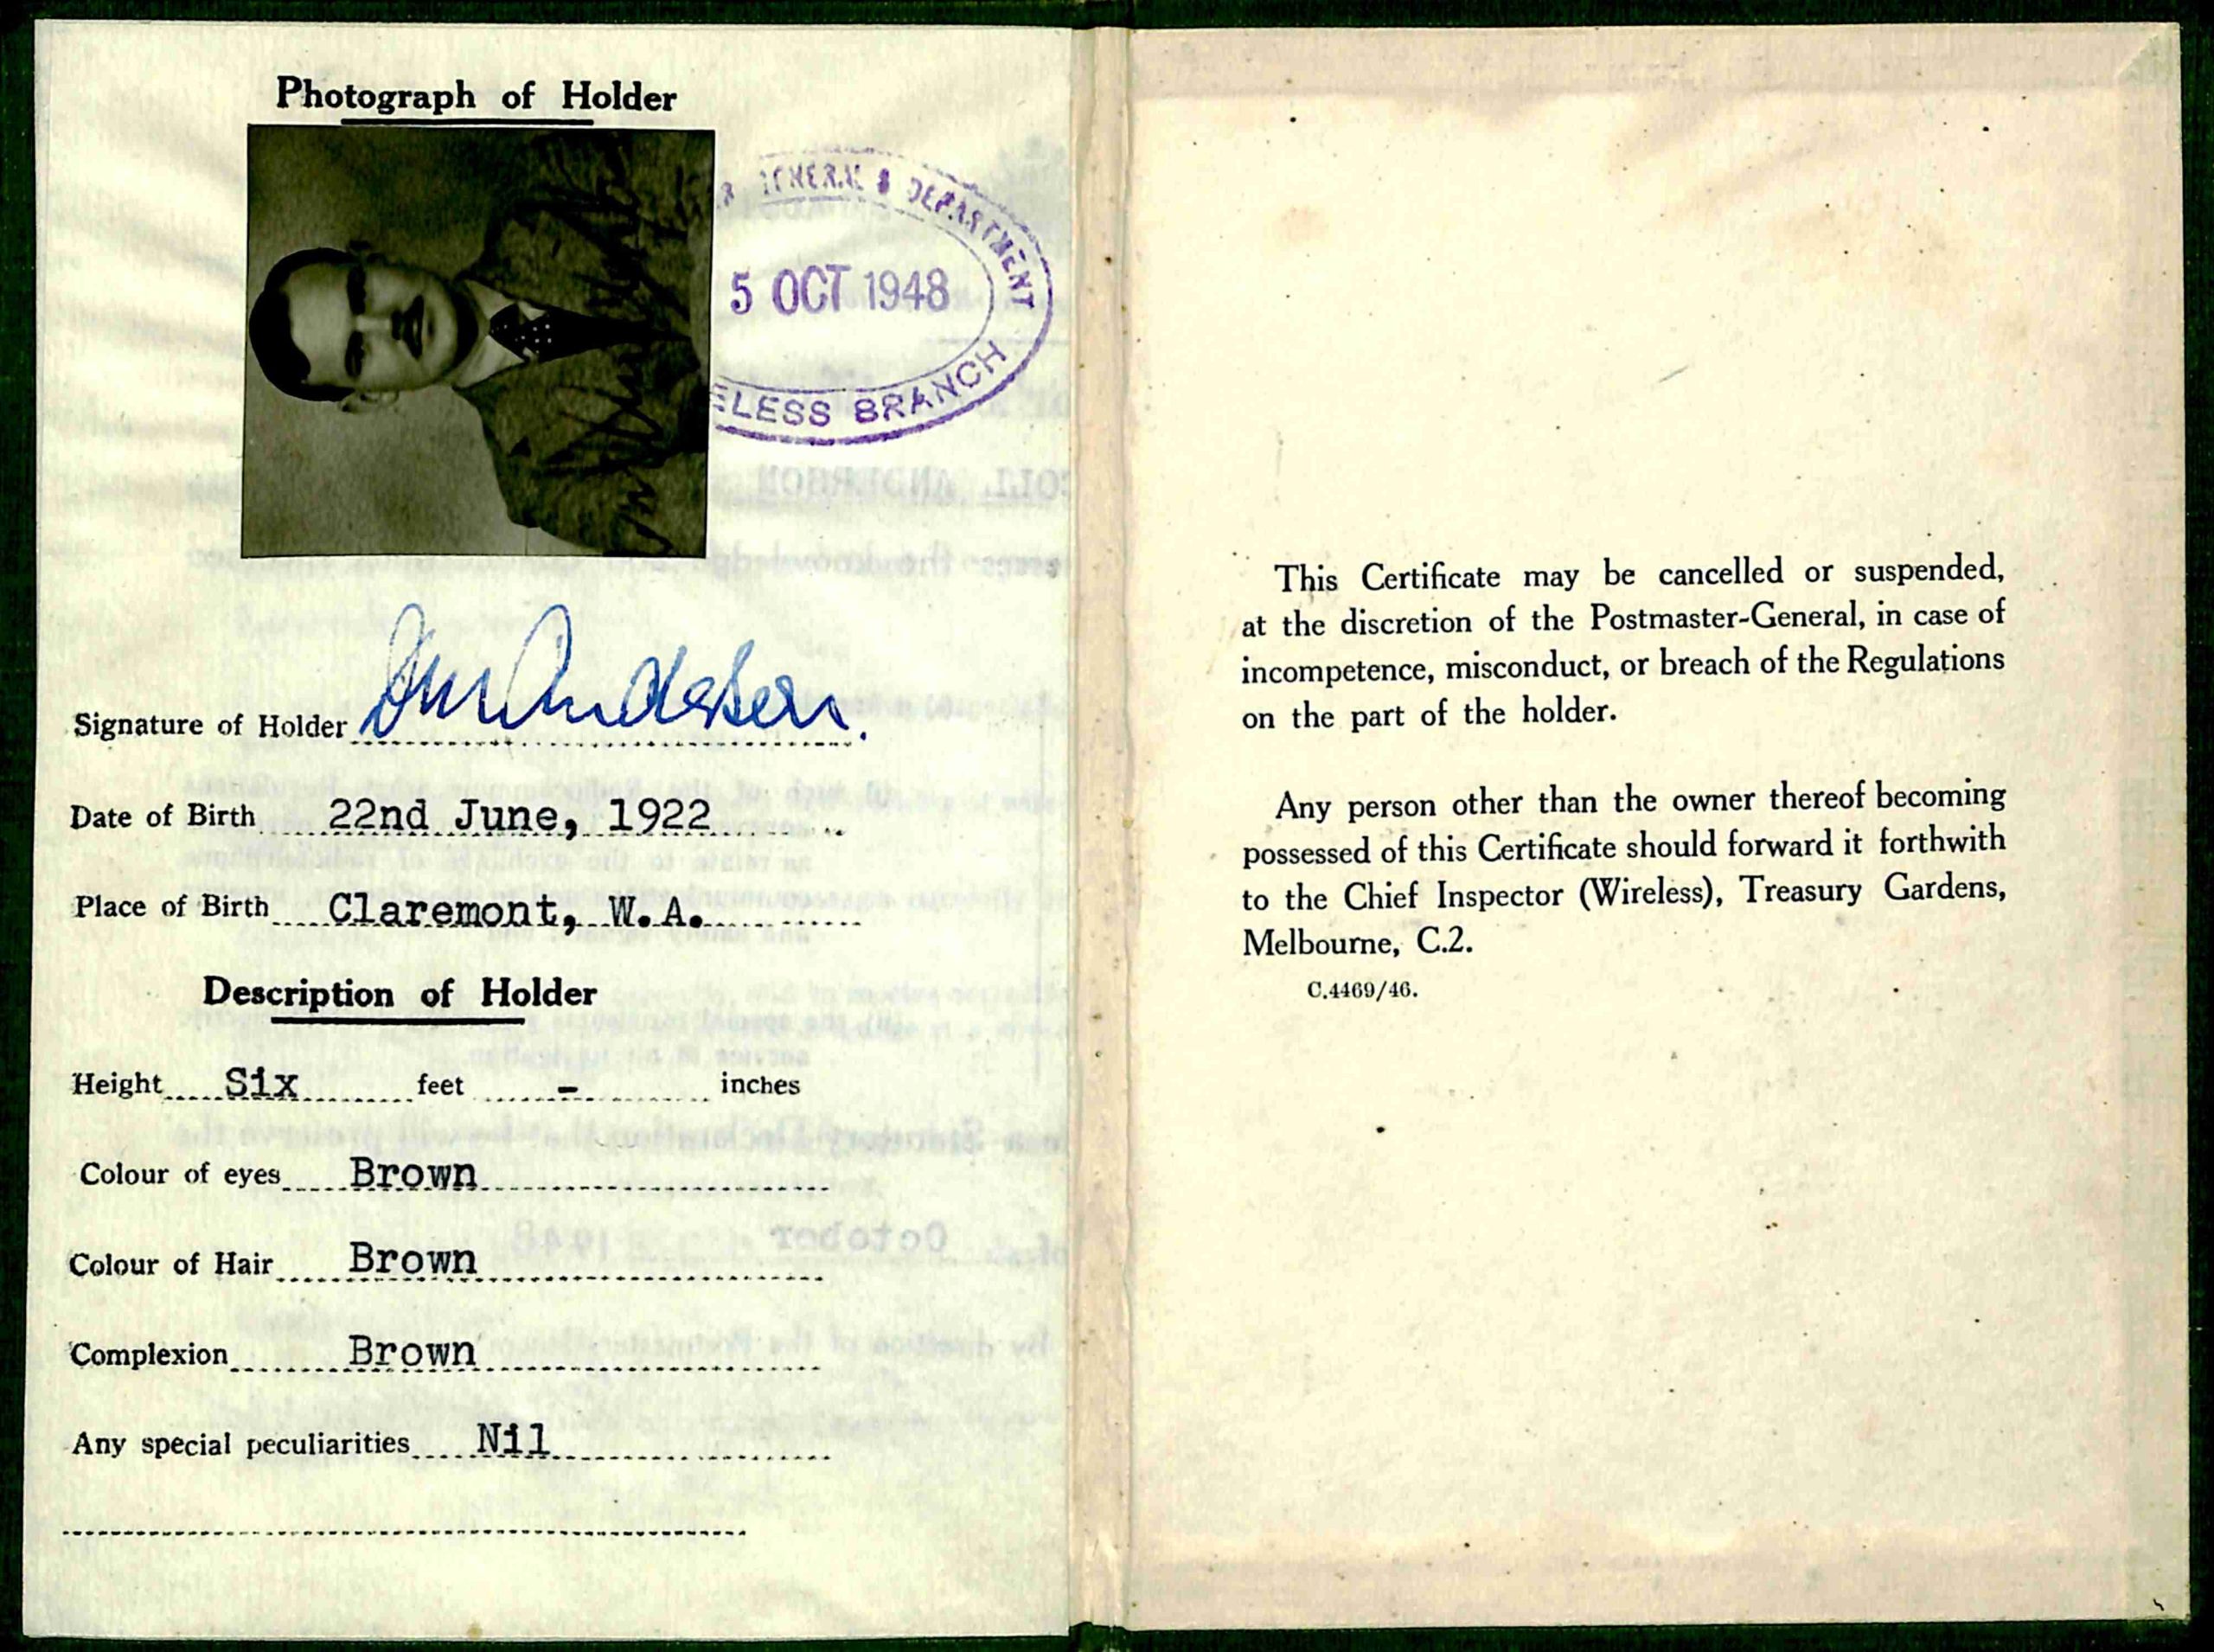 Photograph of Holder
GENERAL'S DEPARTMENT
5 OCT 1948
ELESS BRANCH
Signature of Holder
Date of Birth 22nd June, 1922
Place of Birth Claremont, W.A.
Description of Holder
Height Six feet - inches
Colour of eyes Brown
Colour of Hair Brown
Complexion Brown
Any special peculiarities Nil
This Certificate may be cancelled or suspended,
at the discretion of the Postmaster-General, in case of
incompetence, misconduct, or breach of the Regulations
on the part of the holder.
Any person other than the owner thereof becoming
possessed of this Certificate should forward it forthwith
to the Chief Inspector (Wireless), Treasury Gardens,
Melbourne, C.2.
C.4469/46.